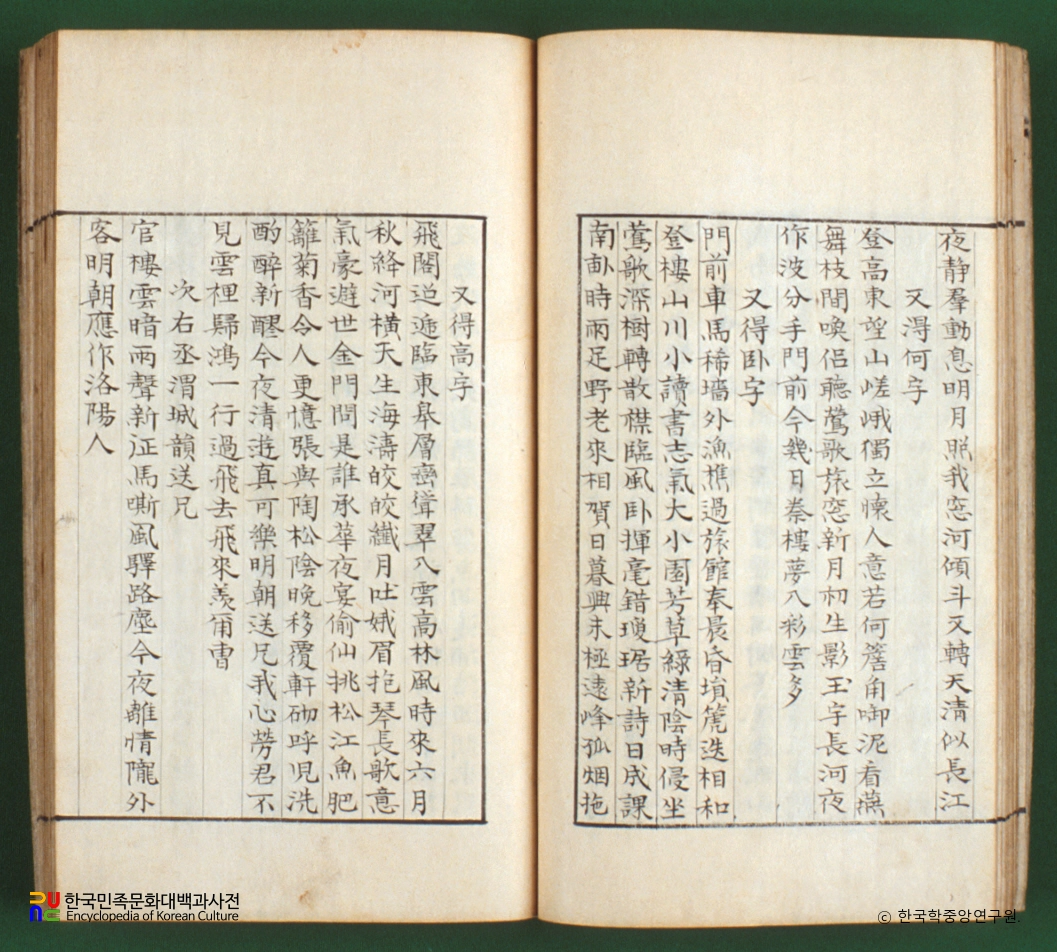 夜静羣動息明月照我窓河傾斗又轉天清似長江
又淂何字
登高東望山嵯峨獨立懷人意若何簷角啣泥看燕
舞枝間喚侶聽鶯歌旅窓新月初生影玉宇長河夜
作波分手門前今幾日秦樓夢入彩雲多
又得卧字
門前車馬稀墻外漁樵過旅館奉晨昏塤篪迭相和
登樓山川小讀書志氣大小園芳草綠清陰時侵坐
鶯歌深樹轉散襟臨風卧揮毫錯瓊琚新詩日成課
南畝時雨足野老來相賀日暮興未極遠峰孤烟拖
又得高字
飛閣迢遞臨東皋層巒聳翠入雲高林風時來六月
秋絳河橫天生海濤皎皎纖月吐娥眉抱琴長歌意
氣豪遊世金門問是誰承華夜宴偷仙桃松江魚肥
籬菊香令人更憶張與陶松陰晩移覆軒砌呼児洗
酌醉新醪今夜清遊真可樂明朝送兄我心勞君不
見雲裡歸鴻一行過飛去飛來羨爾曹
次右丞渭城韻送兄
官樓雲暗雨聲新征馬嘶風驛路塵今夜離情隴外
客明朝應作洛陽人
한국민족문화대백과사전
Encyclopedia of Korean Culture
© 한국학중앙연구원